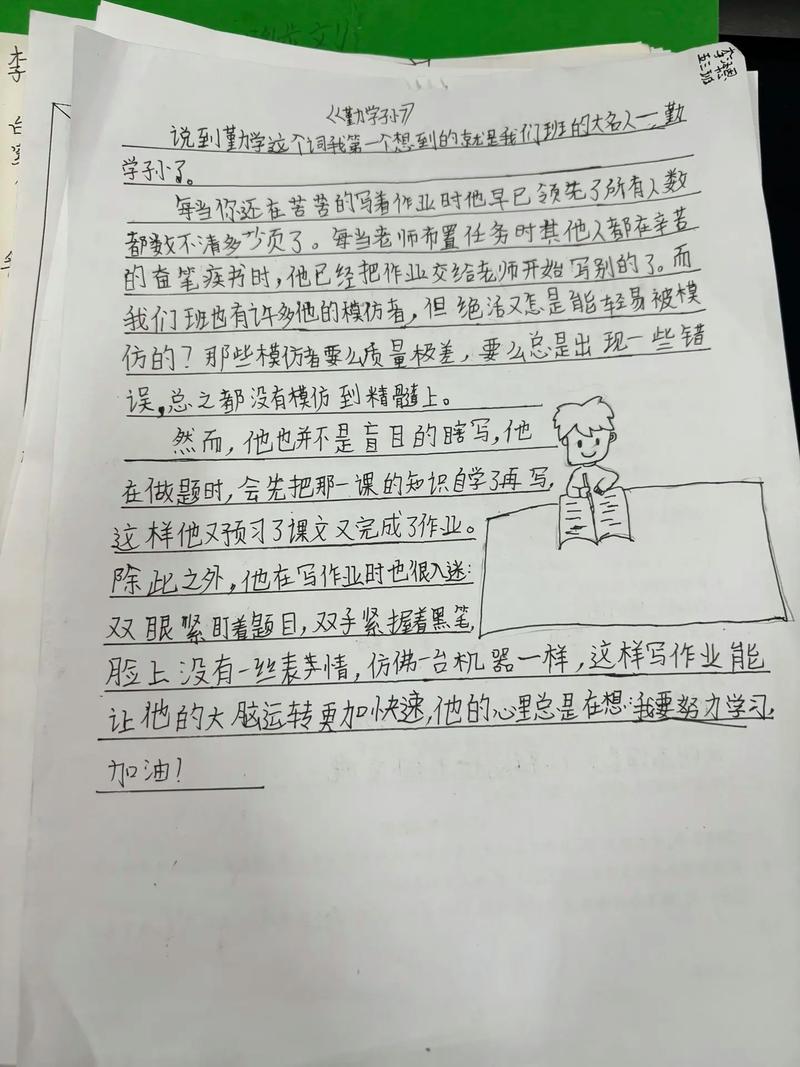 《勤学子小》
说到勤学这个词我第一个想到的就是我们班的大名人——勤
学子小了。
每当你还在苦苦的写着作业时他早已领先了所有人数
都数不清多少页了。每当老师布置任务时其他人都在辛苦
的奋笔疾书时，他已经把作业交给老师开始写别的了。而
我们班也有许多他的模仿者，但绝活又怎是能轻易被模
仿的？那些模仿者要么质量极差，要么总是出现一些错
误，总之都没有模仿到精髓上。
然而，他也并不是盲目的瞎写，他
在做题时，会先把那一课的知识自学了再写，
这样他又预习了课文又完成了作业。
除此之外，他在写作业时也很入迷：
双眼紧盯着题目，双手紧握着黑笔，
脸上没有一丝表情，仿佛一台机器一样，这样写作业能
让他的大脑运转更加快速，他的心里总是在想：我要努力学习，
加油！
李
五三班